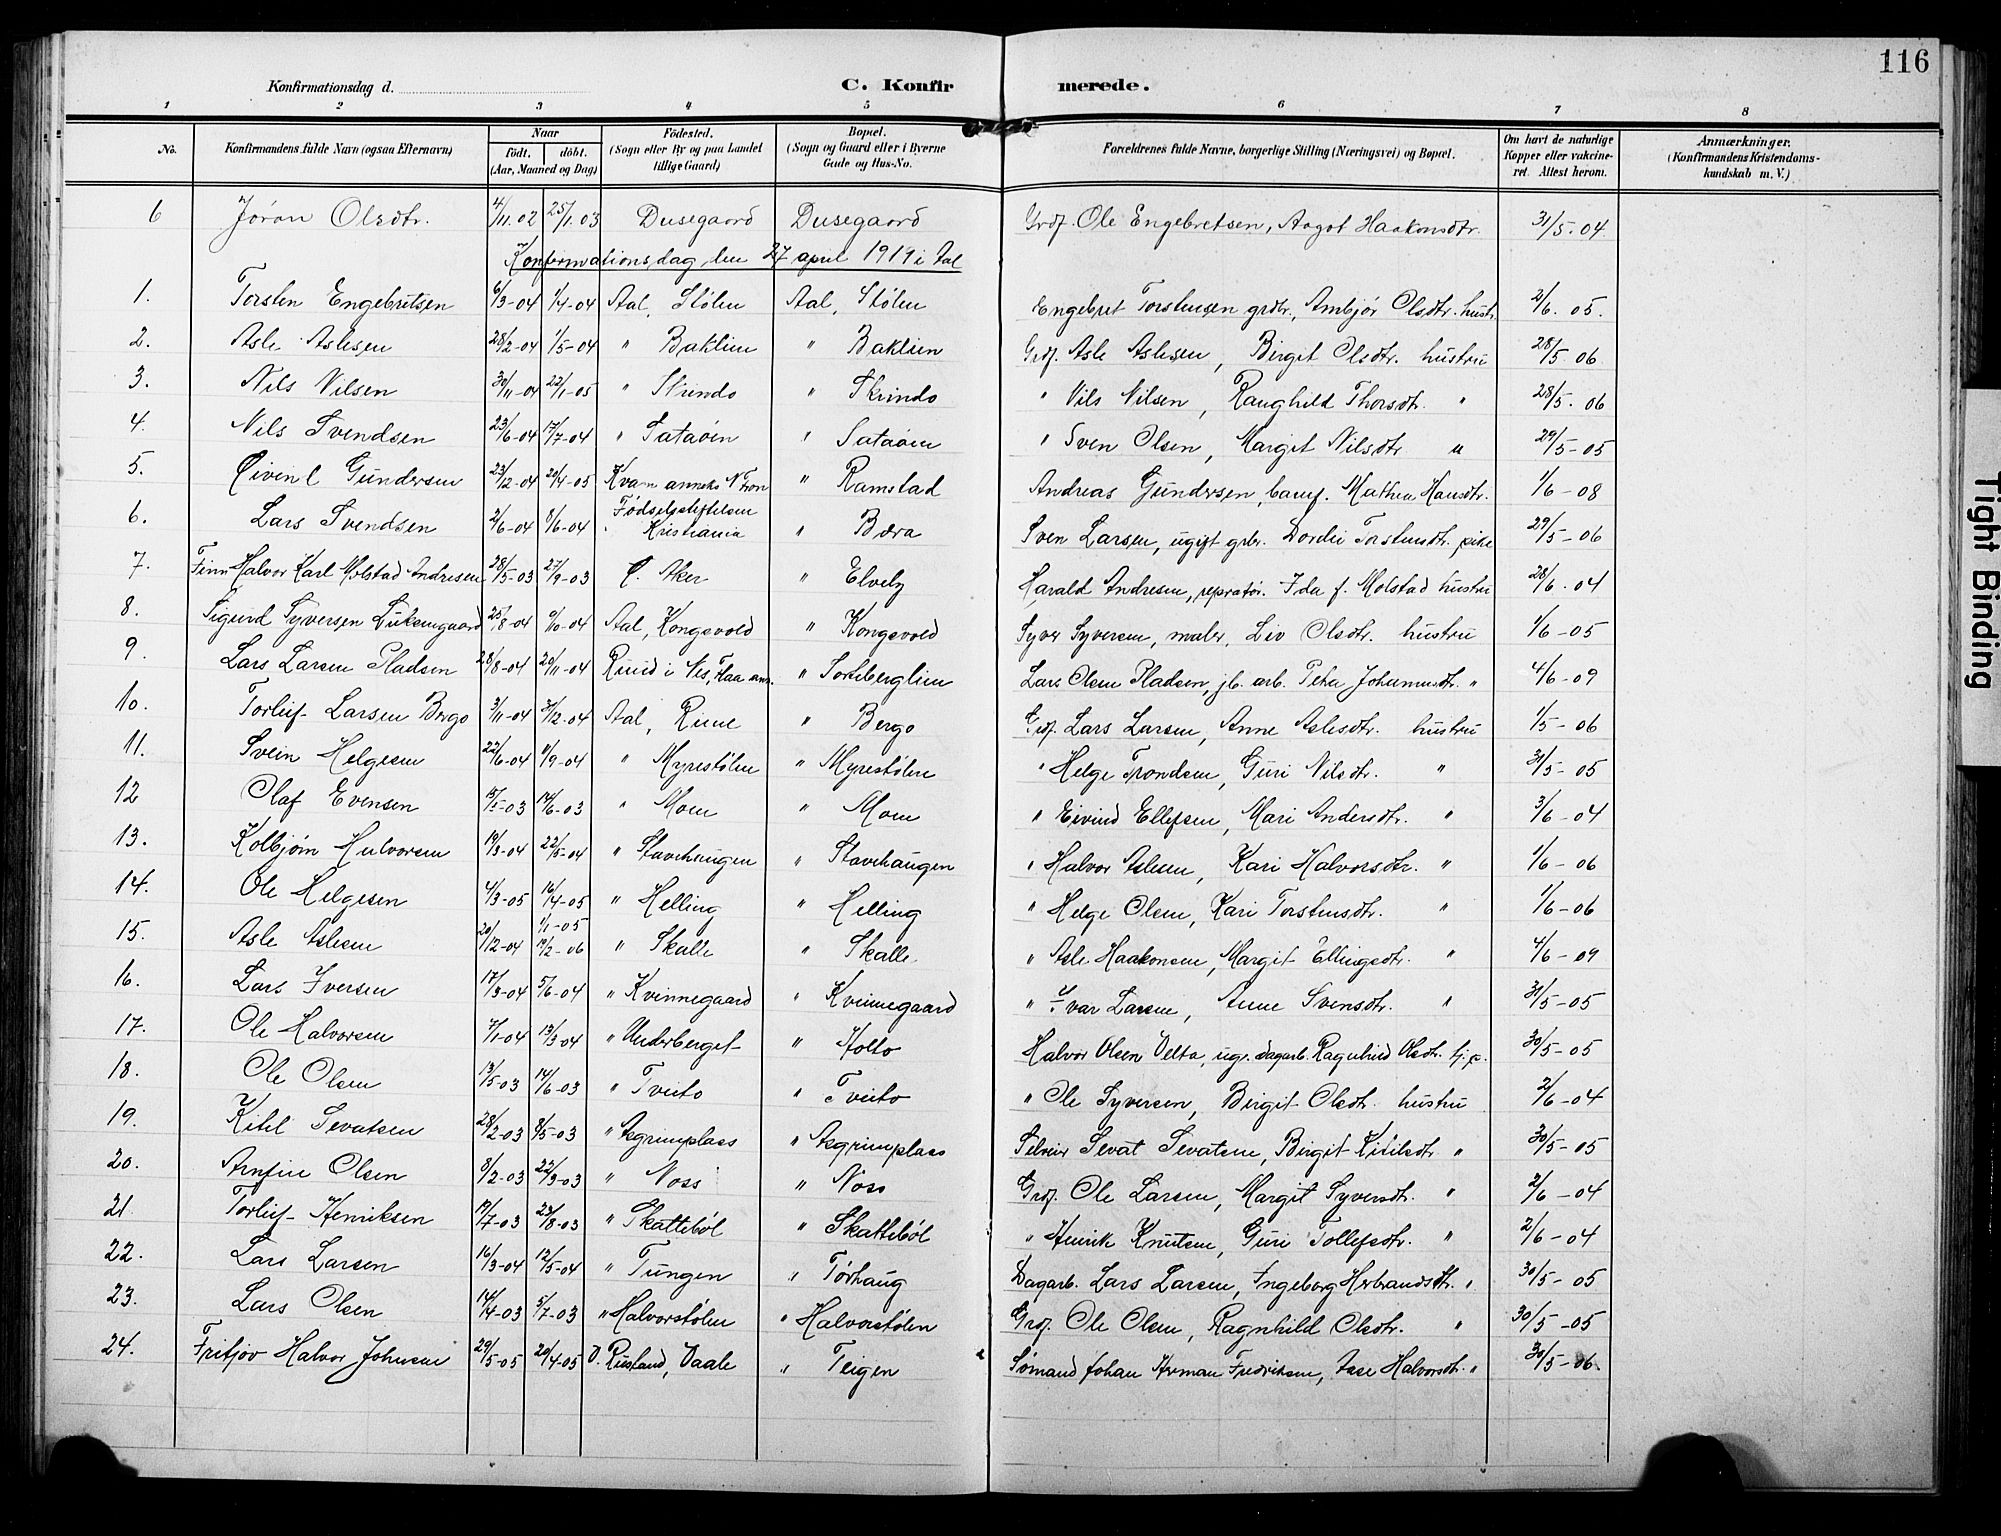 116
Konfirmationsdag d.
C. Konfirmerede.
1 2 3 4 5 6 7 8
No. Konfirmandens fulde Navn (ogsaa Efternavn) Naar født. døbt. (Aar, Maaned og Dag) Fødested. (Sogn eller By og paa Landet tillige Gaard) Bopæl. (Sogn og Gaard eller i Byerne Gade og Hus-No. Forældrenes fulde Navne, borgerlige Stilling (Næringsvei) og Bopæl. Om havt de naturlige Kopper eller vakcineret. Attest herom. Anmærkninger. (Konfirmandens Kristendomskundskab m. V.)
6 Jøran Olsdtr. 4/11.02 25/1.03 Dusegaard Dusegaard Grdf. Ole Engebretsen, Aagot Haakonsdtr. 31/5-04
Konfirmationsdag den 27 april 1919 i Aal
1. Torsten Engebretsen 6/3-04 1/4-04 Aal, Stølen Aal, Stølen Engebret Torstensen grdbr., Ambjør Olsdtr. hustr. 2/6.05.
2. Asle Aslesen 28/2-04 1/5-04 " Baklien " Baklien Grdf. Asle Aslesen, Birgit Olsdtr. hustru 28/5 06
3. Nils Nilsen 30/11-04 22/1-05 " Skrindo " Skrindo " Nils Nilsen, Ranghild Thorsdtr. " 28/5.06
4. Nils Svendsen 23/6-04 17/7-04 " Sataøen " Sataøen " Sven Olsen, Margit Nilsdtr " 29/5-05
5. Eivind Gundersen 23/2-04 20/4-05 Kvam anneks N Fron " Ramstad Andreas Gundersen, banf. Mathea Hansdtr. 1/6-08
6. Lars Svendsen 2/6-04 8/6-04 Fødselsstiftelsen Kristiania " Bæra Sven Larsen, ugift grbr. Dordei Torstensdtr. pike 29/5-06
7. Finn Halvor Karl Molstad Andresen 28/5-03 27/9-03 Ø. Aker " Elvely Harald Andresen, repratør. Ida f. Molstad hustru 28/6-04
8. Sigurd Syversen Lükensgaard 25/8-04 9/10-04 Aal, Kongsvold " Kongsvold Syver Syversen, maler, Liv Olsdtr. hustru 1/6-05
9. Lars Larsen Pladsen 28/8-04 20/11-04 Rund i Nes, Flaa ann. " Sorteberglien Lars Olsen Pladsen, jb. arb. Petra Johannesdtr. " 4/6-09
10. Torleif Larsen Bergo 3/11-04 7/12-04 Aal, Rime " Bergo Grdf. Lars Larsen, Anne Aslesdtr. hustru 1/5-06
11. Svein Helgesen 22/6-04 11/9-04 " Myrestølen " Myrestølen " Helge Trondsen, Guri Nilsdtr. " 31/5-05
12 Olaf Evensen 15/5-03 14/6-03 " Moen " Moen " Eivind Ellefsen, Mari Andersdtr. " 3/6-04
13. Kolbjørn Halvorsen 19/3-04 22/5-04 " Stavehaugen " Stavehaugen " Halvor Aslesen, Kari Halvorsdtr. " 1/6-06
14. Ole Helgesen 4/3-05 16/4-05 " Helling " Helling " Helge Olsen, Kari Torstensdtr. " 1/6-06
15. Asle Aslesen 20/12-04 1/1-05 19/2-06 " Skalle " Skalle " Asle Haakonsen, Margit Ellingsdtr. " 4/6-09
16. Lars Iversen 17/3-04 5/6-04 " Kvinnegaard " Kvinnegaard " Ivar Larsen, Anne Svensdtr. " 31/5-05
17. Ole Halvorsen 7/1-04 13/3-04 " Underberget " Holto Halvor Olsen Velta, ugr. dagarb. Ragnhild Olsdtr. tj.p. 30/5-05
18. Ole Olsen 13/5-03 14/6-03 " Tveito " Tveito " Ole Syversen, Birgit Olsdtr. hustru 2/6-04
19. Kitil Sevatsen 28/2-03 8/5-03 " Asgrimplass " Asgrimplass Selveier Sevat Sevatsen, Birgit Kitilsdtr " 30/5-05
20. Arnfin Olsen 8/2-03 22/3-03 " Noss " Noss Grdf. Ole Larsen, Margit Syversdtr. " 2/6-04
21. Torleif Henriksen 19/7-03 23/8-03 " Skattebøl " Skattebøl " Henrik Knutsen, Guri Tollefsdtr. " 2/6-04
22. Lars Larsen 16/3-04 12/5-04 " Tungen " Tørhaug Dagarb. Lars Larsen, Ingeborg Herbrandsdtr. " 30/5-05
23. Lars Olsen 14/4-03 5/7-03 " Halvorstølen " Halvorstølen Grdf. Ole Olsen, Ragnhild Olsdtr. " 30/5-05
24. Fritjov Halvor Johnsen 29/5-05 20/4-05 Rusland, Vaale " Teigen Sømand Johan Herman Fredriksen, Aase Halvorsdtr. " 30/5-06.
Tight Binding